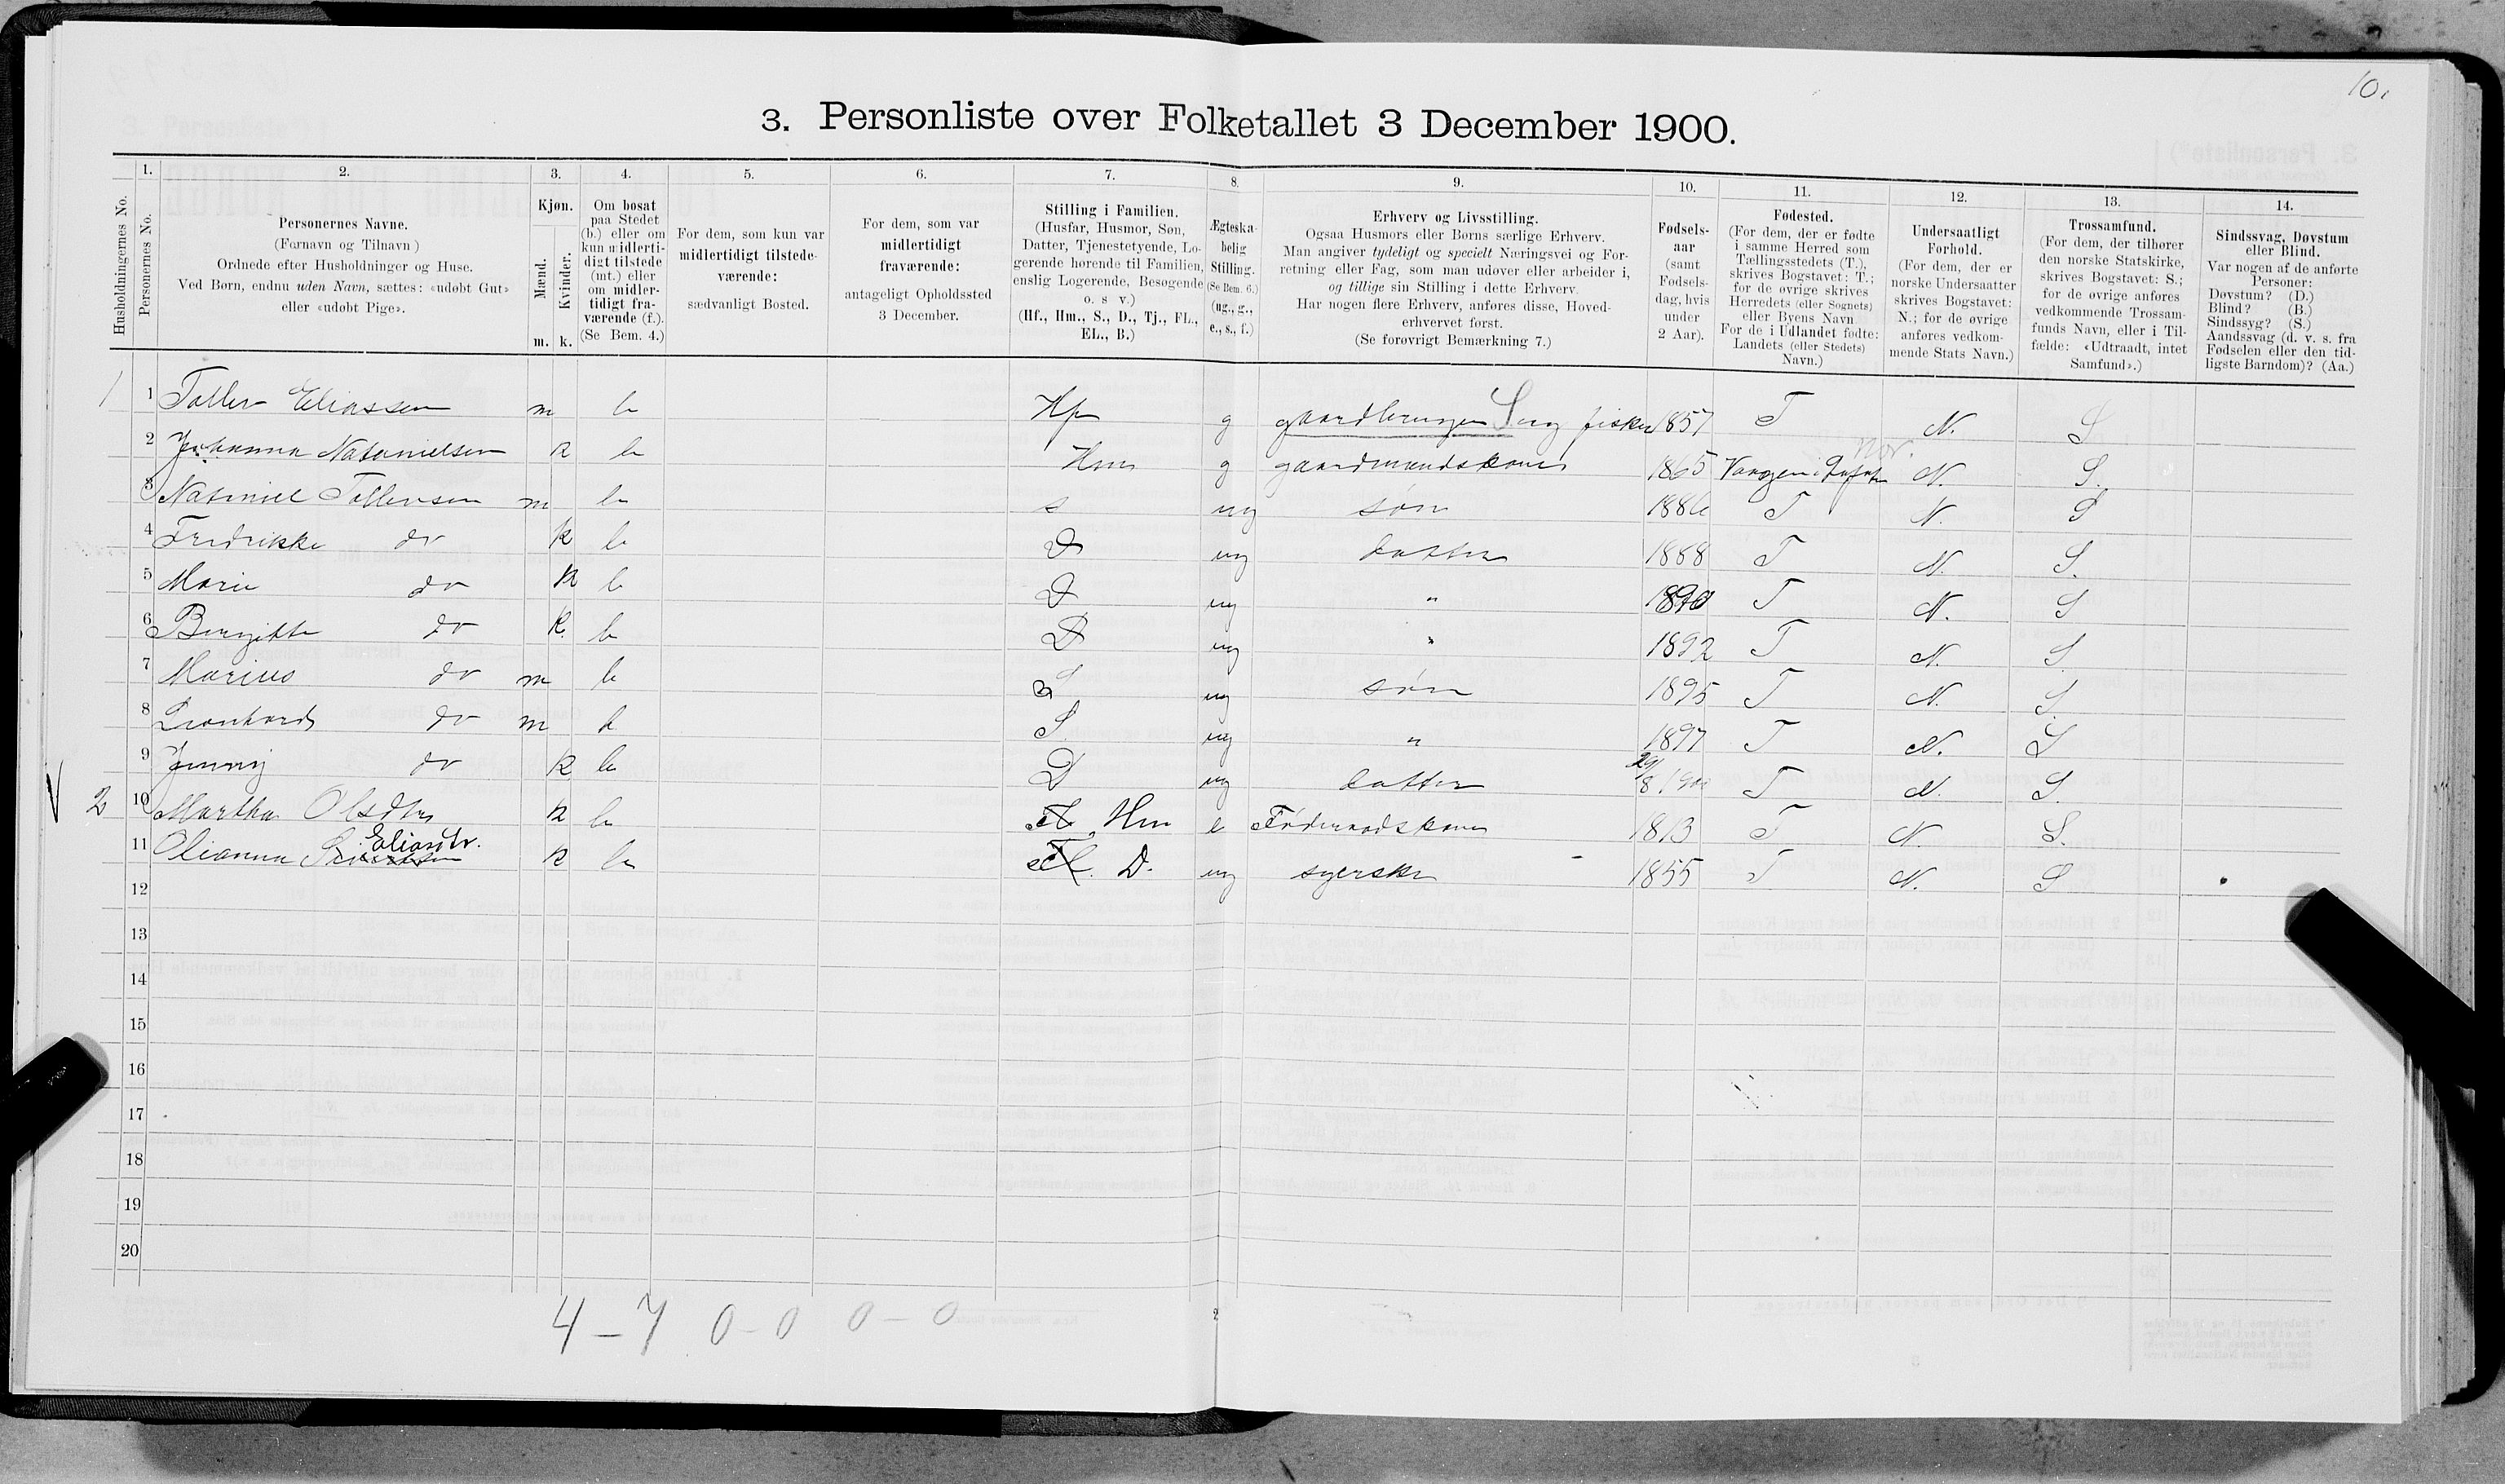 10.
3. Personliste over Folketallet 3 December 1900.
Husholdningernes No.
1. Personernes No.
2. Personernes Navne. (Fornavn og Tilnavn) Ordnede efter Husholdninger og Huse. Ved Børn, endnu uden Navn, sættes: «udøbt Gut» eller «udøbt Pige».
3. Kjøn. Mænd. m. Kvinder. k.
4. Om bosat paa Stedet (b.) eller om kun midlertidigt tilstede (mt.) eller om midlertidigt fraværende (f.). (Se Bem. 4.)
5. For dem, som kun var midlertidigt tilstedeværende: sædvanligt Bosted.
6. For dem, som var midlertidigt fraværende: antageligt Opholdssted 3 December.
7. Stilling i Familien. (Husfar, Husmor, Søn, Datter, Tjenestetyende, Logerende hørende til Familien, enslig Logerende, Besøgende o. s v.) (Hf., Hm., S., D., Tj., FL., EL., B.)
8. Ægteskabelig Stilling. (Se Bem. 6.) (ug., g., e., s., f.)
9. Erhverv og Livsstilling. Ogsaa Husmors eller Børns særlige Erhverv. Man angiver tydeligt og specielt Næringsvei og Forretning eller Fag, som man udøver eller arbeider i, og tillige sin Stilling i dette Erhverv. Har nogen flere Erhverv, anføres disse, Hovederhvervet først. (Se forøvrigt Bemærkning 7.)
10. Fødselsaar (samt Fødselsdag, hvis under 2 Aar).
11. Fødested. (For dem, der er fødte i samme Herred som Tællingsstedets (T.), skrives Bogstavet: T.; for de øvrige skrives Herredets (eller Sognets) eller Byens Navn For de i Udlandet fødte: Landets (eller Stedets) Navn.)
12. Undersaatligt Forhold. (For dem, der er norske Undersaatter skrives Bogstavet: N.; for de øvrige anføres vedkommende Stats Navn.)
13. Trossamfund. (For dem, der tilhører den norske Statskirke, skrives Bogstavet: S.; for de øvrige anføres vedkommende Trossamfunds Navn, eller i Tilfælde: «Udtraadt, intet Samfund».)
14. Sindssvag, Døvstum eller Blind. Var nogen af de anførte Personer: Døvstum? (D.) Blind? (B.) Sindssyg? (S.) Aandssvag (d. v. s. fra Fødselen eller den tidligste Barndom)? (Aa.)
1 1 Toller Eliassen m b Hf g gaardbruger S og fisker 1857 T N. S
2 Johanna Natanielsen k b Hm g gaardmandskone 1865 Vaagen i Lofoten nor. N. S.
3 Nataniel Tollersen m b s ug søn 1886 T N. S
4 Fredrikke do k b D ug datter 1888 T N. S.
5 Marie do k b D ug " 1890 T N. S
6 Bergitte do k. b D ug " 1892 T N. S
7 Marius do m b S ug søn 1895 T N. S.
8 Leonhard do m b S ug " 1897 T N. S
9 Jenny do k b D ug datter 29/8 1900 T N. S.
V 2 10 Martha Olsdtr k b Hm e Føderaadskone 1813 T N. S.
11 Olianna Eliasdtr. k b D. ug syerske 1855 T N. S
12
13
14
15
16
17
18
19
20
4-7 0-0 0-0
2